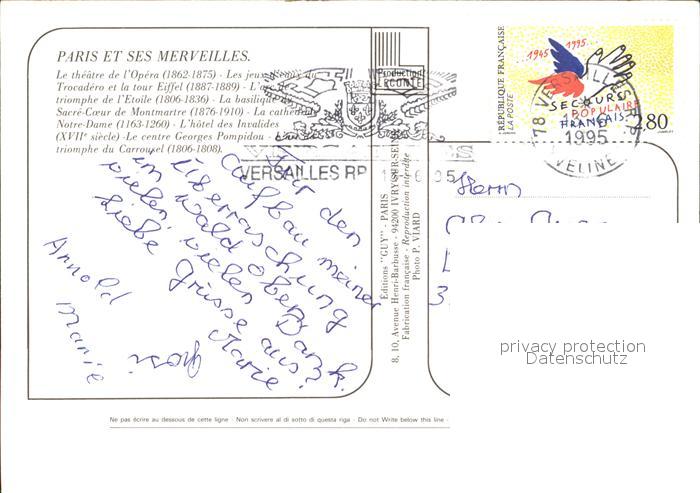 PARIS ET SES MERVEILLES.
Le théâtre de l'Opéra (1862-1875) - Les jeux d'eau du
Trocadéro et la tour Eiffel (1887-1889) - L'arc de
triomphe de l'Etoile (1806-1836) - La basilique du
Sacré-Cœur de Montmartre (1876-1910) - La cathédrale
Notre-Dame (1163-1260) - L'hôtel des Invalides
(XVIIe siècle) - Le centre Georges Pompidou - L'arc de
triomphe du Carrousel (1806-1808).
Production
LECONTE
RÉPUBLIQUE FRANÇAISE
LA POSTE
1945 1995
SECOURS
POPULAIRE
FRANÇAIS
2,80
78 VERSAILLES
1995
YVELINES
VERSAILLES RP
Für den
Aufbau meiner
Überraschung
im Wald oben
vielen, vielen Dank.
Liebe Grüsse aus
Marie
Arnold
Marie
Herrn
Éditions "GUY" - PARIS
8, 10, Avenue Henri-Barbusse - 94200 IVRY-SUR-SEINE
Fabrication française - Reproduction interdite
Photo P. VIARD
3
privacy protection
Datenschutz
Ne pas écrire au dessous de cette ligne - Non scrivere al di sotto di questa riga - Do not Write below this line -